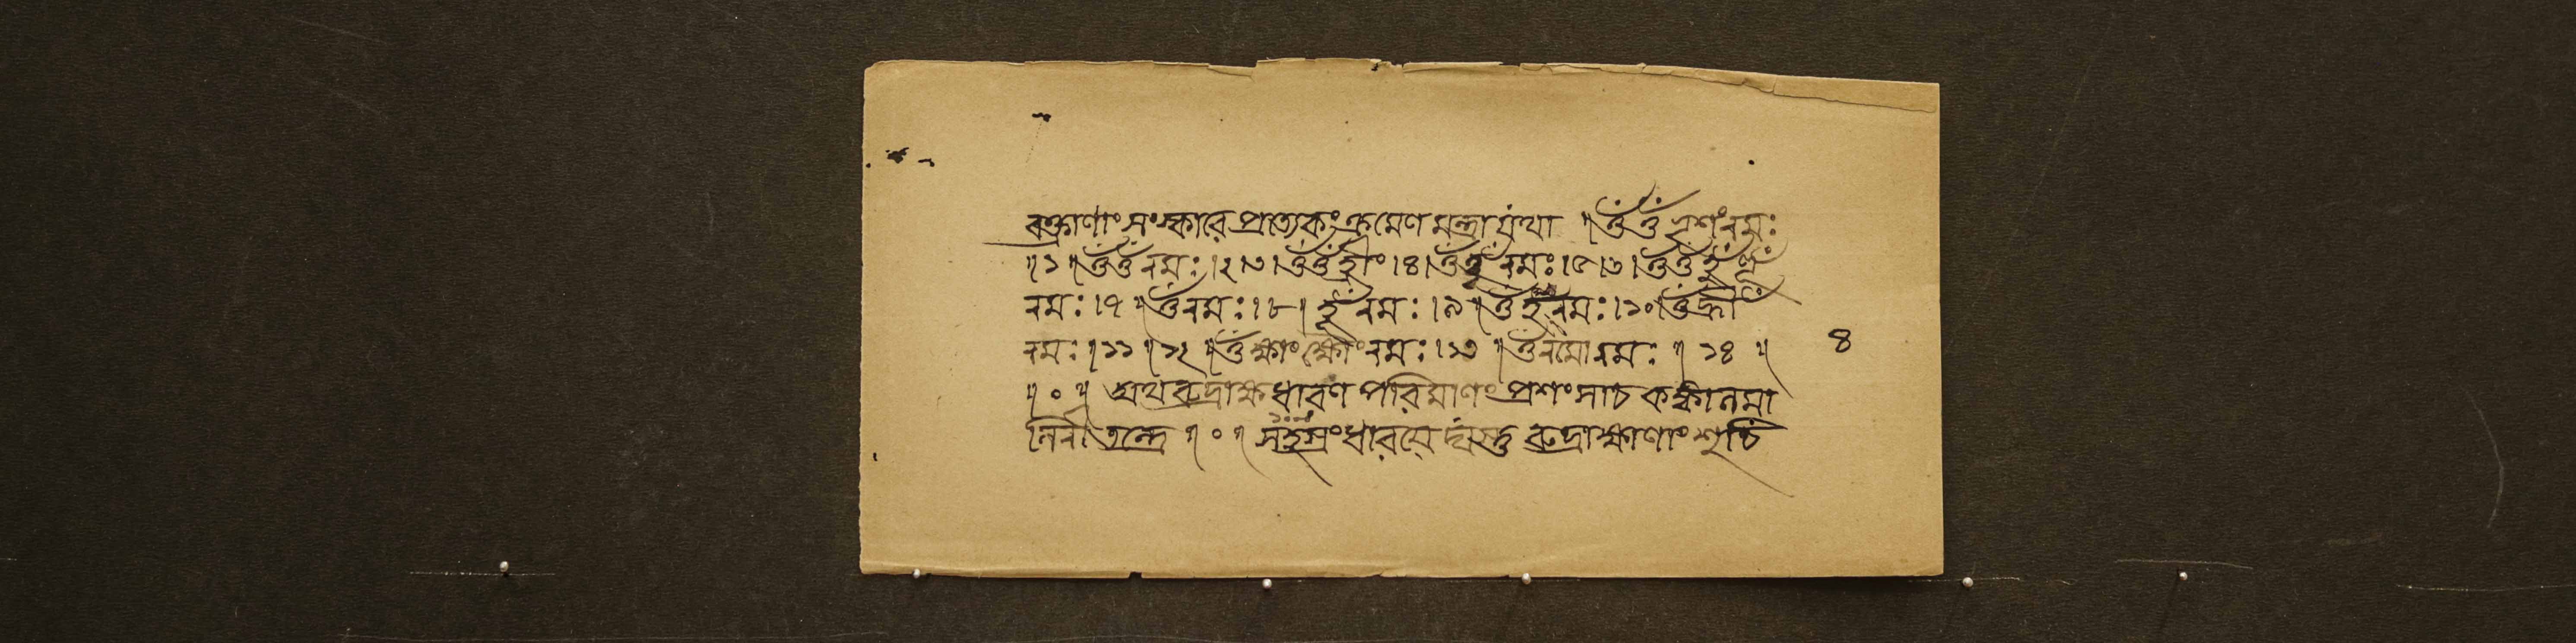 বক্ত্রাণাং সংস্কারে প্রত্যেকং ক্রমেণ মন্ত্রা যথা ॥ ওঁ ওঁ নমঃ
॥ ১ ॥ ওঁ ওঁ নমঃ । ২ । ৩ । ওঁ ওঁ হ্রীং । ৪ । ওঁ হূঁ নমঃ । ৫ । ৬ । ওঁ ওঁ হূঁ
নমঃ । ৭ ॥ ওঁ নমঃ । ৮ ॥ হূঁ নমঃ । ৯ ॥ ওঁ হূঁ নমঃ । ১০ । ওঁ হ্রীঁ
নমঃ ॥ ১১ ॥ ১২ ॥ ওঁ ক্ষাং ক্ষৌং নমঃ । ১৩ ॥ ওঁ নমো নমঃ ॥ ১৪ ॥
॥ ০ ॥ অথ রুদ্রাক্ষধারণ পরিমাণং প্রশংসাচ
তন্ত্রে ॥ ০ ॥ ধারয়ে রুদ্রাক্ষাণাং শুচি
৪